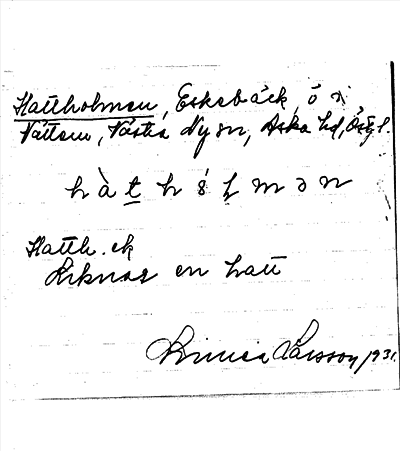 Hattholmen, Eskebäck, ö i
Vättern, Västra Ny sn, Aska hd, Östg l.
h à t h ó l m ə n
Hatth. ek
Liknar en hatt
Linnea Larsson 1931.